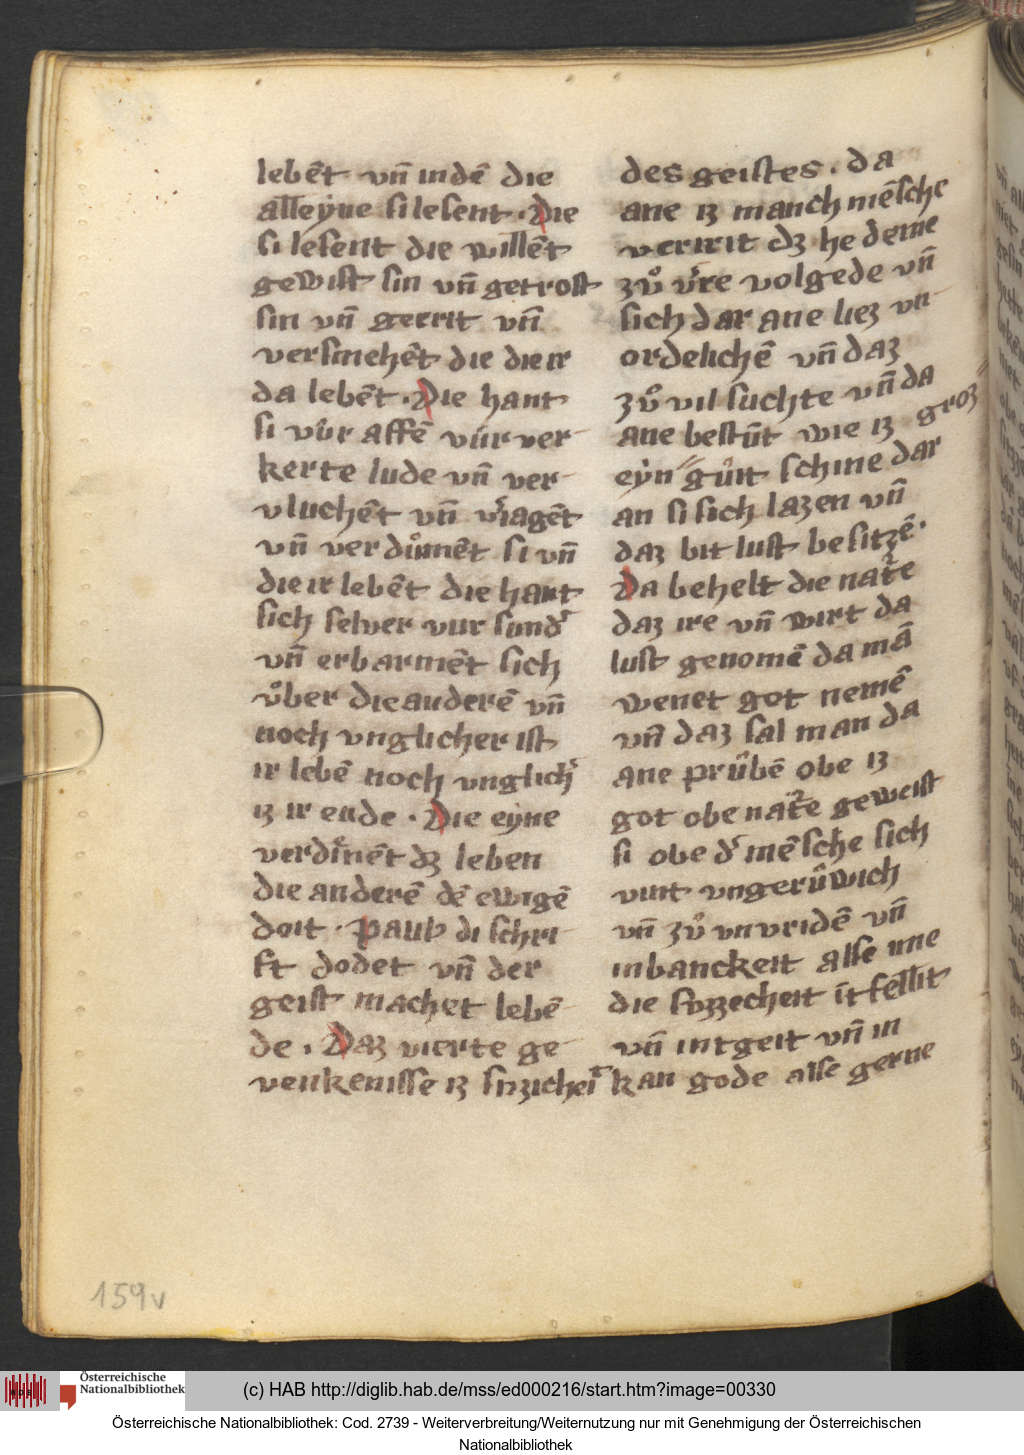 lebēt vn̄ in dē die
alleyne si lesent · Die
si lesent die willēt
gewist sin vn̄ getrost
sin vn̄ gerrit vn̄
versmehēt die die ir
da lebēt · Die hant
si vůr affē vůr ver
kerte lude vn̄ ver
vluchēt vn̄ vͥragēt
vn̄ verdůmēt si vn̄
die ir lebēt die hant
sich selver vur sundʾ
vn̄ erbarmēt sich
vͦber die anderē vn̄
noch vnglicher ist
ir lebē noch vnglichʾ
iz ir ende · Die eyne
verdiͤnēt dz leben
die anderē dē ewigē
doit · Paulꝰ di schri
ft dodet vn̄ der
geist machet lebē
de · Daz vierte ge
venkenisse iz
des geistes · da
ane iz manch mēsche
veririt dz he deme
zuͦ vͥre volgede vn̄
sich dar ane liez vn
ordelichē vn̄ daz
zuͦ vil suchte vn̄ da
ane bestūt wie iz groz
eyn guͦt schine dar
an si sich lazen vn̄
daz bit lust besitzē ·
Da behelt die natʾe
daz ire vn̄ wirt da
lust genomē da mā
wenet got nemē
vn̄ daz sal man da
ane pruͤbē obe iz
got obe natʾe geweist
si obe dʾ mēsche sich
vint vngeruͤwich
vn̄ zuͦ vnvridē vn̄
in banckeit alse ime
die suzzecheit īt fellit
vn̄ intgeit vn̄ in
kan gode alse gerne
159v
Österreichische
Nationalbibliothek
(c) HAB http://diglib.hab.de/mss/ed000216/start.htm?image=00330
Österreichische Nationalbibliothek: Cod. 2739 - Weiterverbreitung/Weiternutzung nur mit Genehmigung der Österreichischen
Nationalbibliothek